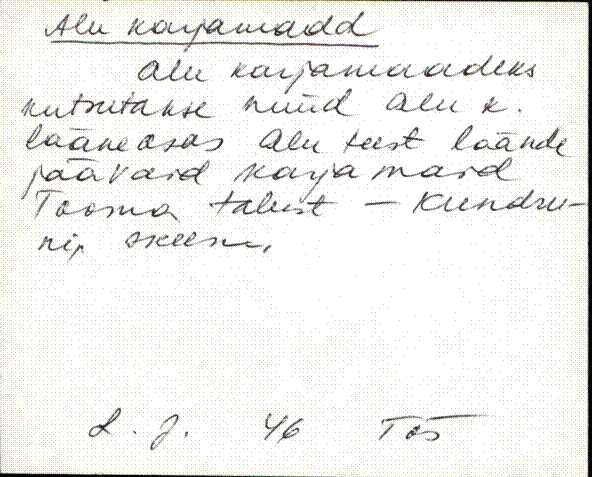 Alu karjamaad
Alu karjamaadeks
kutsutakse nüüd Alu k.
lääneosas Alu teest läände
jäävaid karjamaid
Tooma talust – Kundru-
nip. skeem.
L. J. 46 Tõs